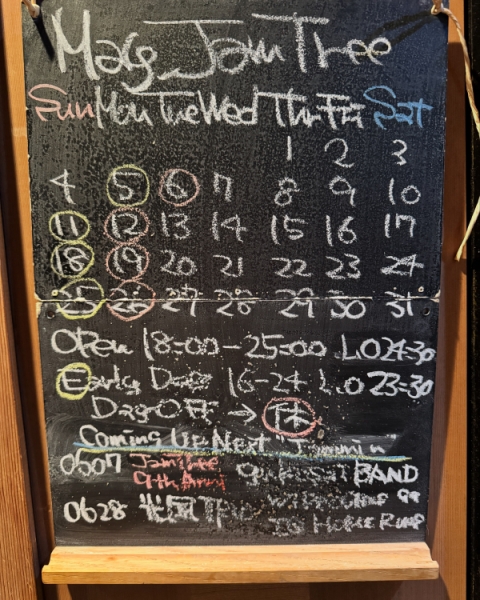 May JamTree
Sun Mon Tue Wed Thr Fri Sat
1 2 3
4 5 6 7 8 9 10
11 12 13 14 15 16 17
18 19 20 21 22 23 24
25 26 27 28 29 30 31
Open 18=00-25=00 LO24=30
Early Day 16-24 L.O 23=30
Day OFF → 休
Coming Up Next "Jammin"
0607 JamTree
9th Anni BAND
0628